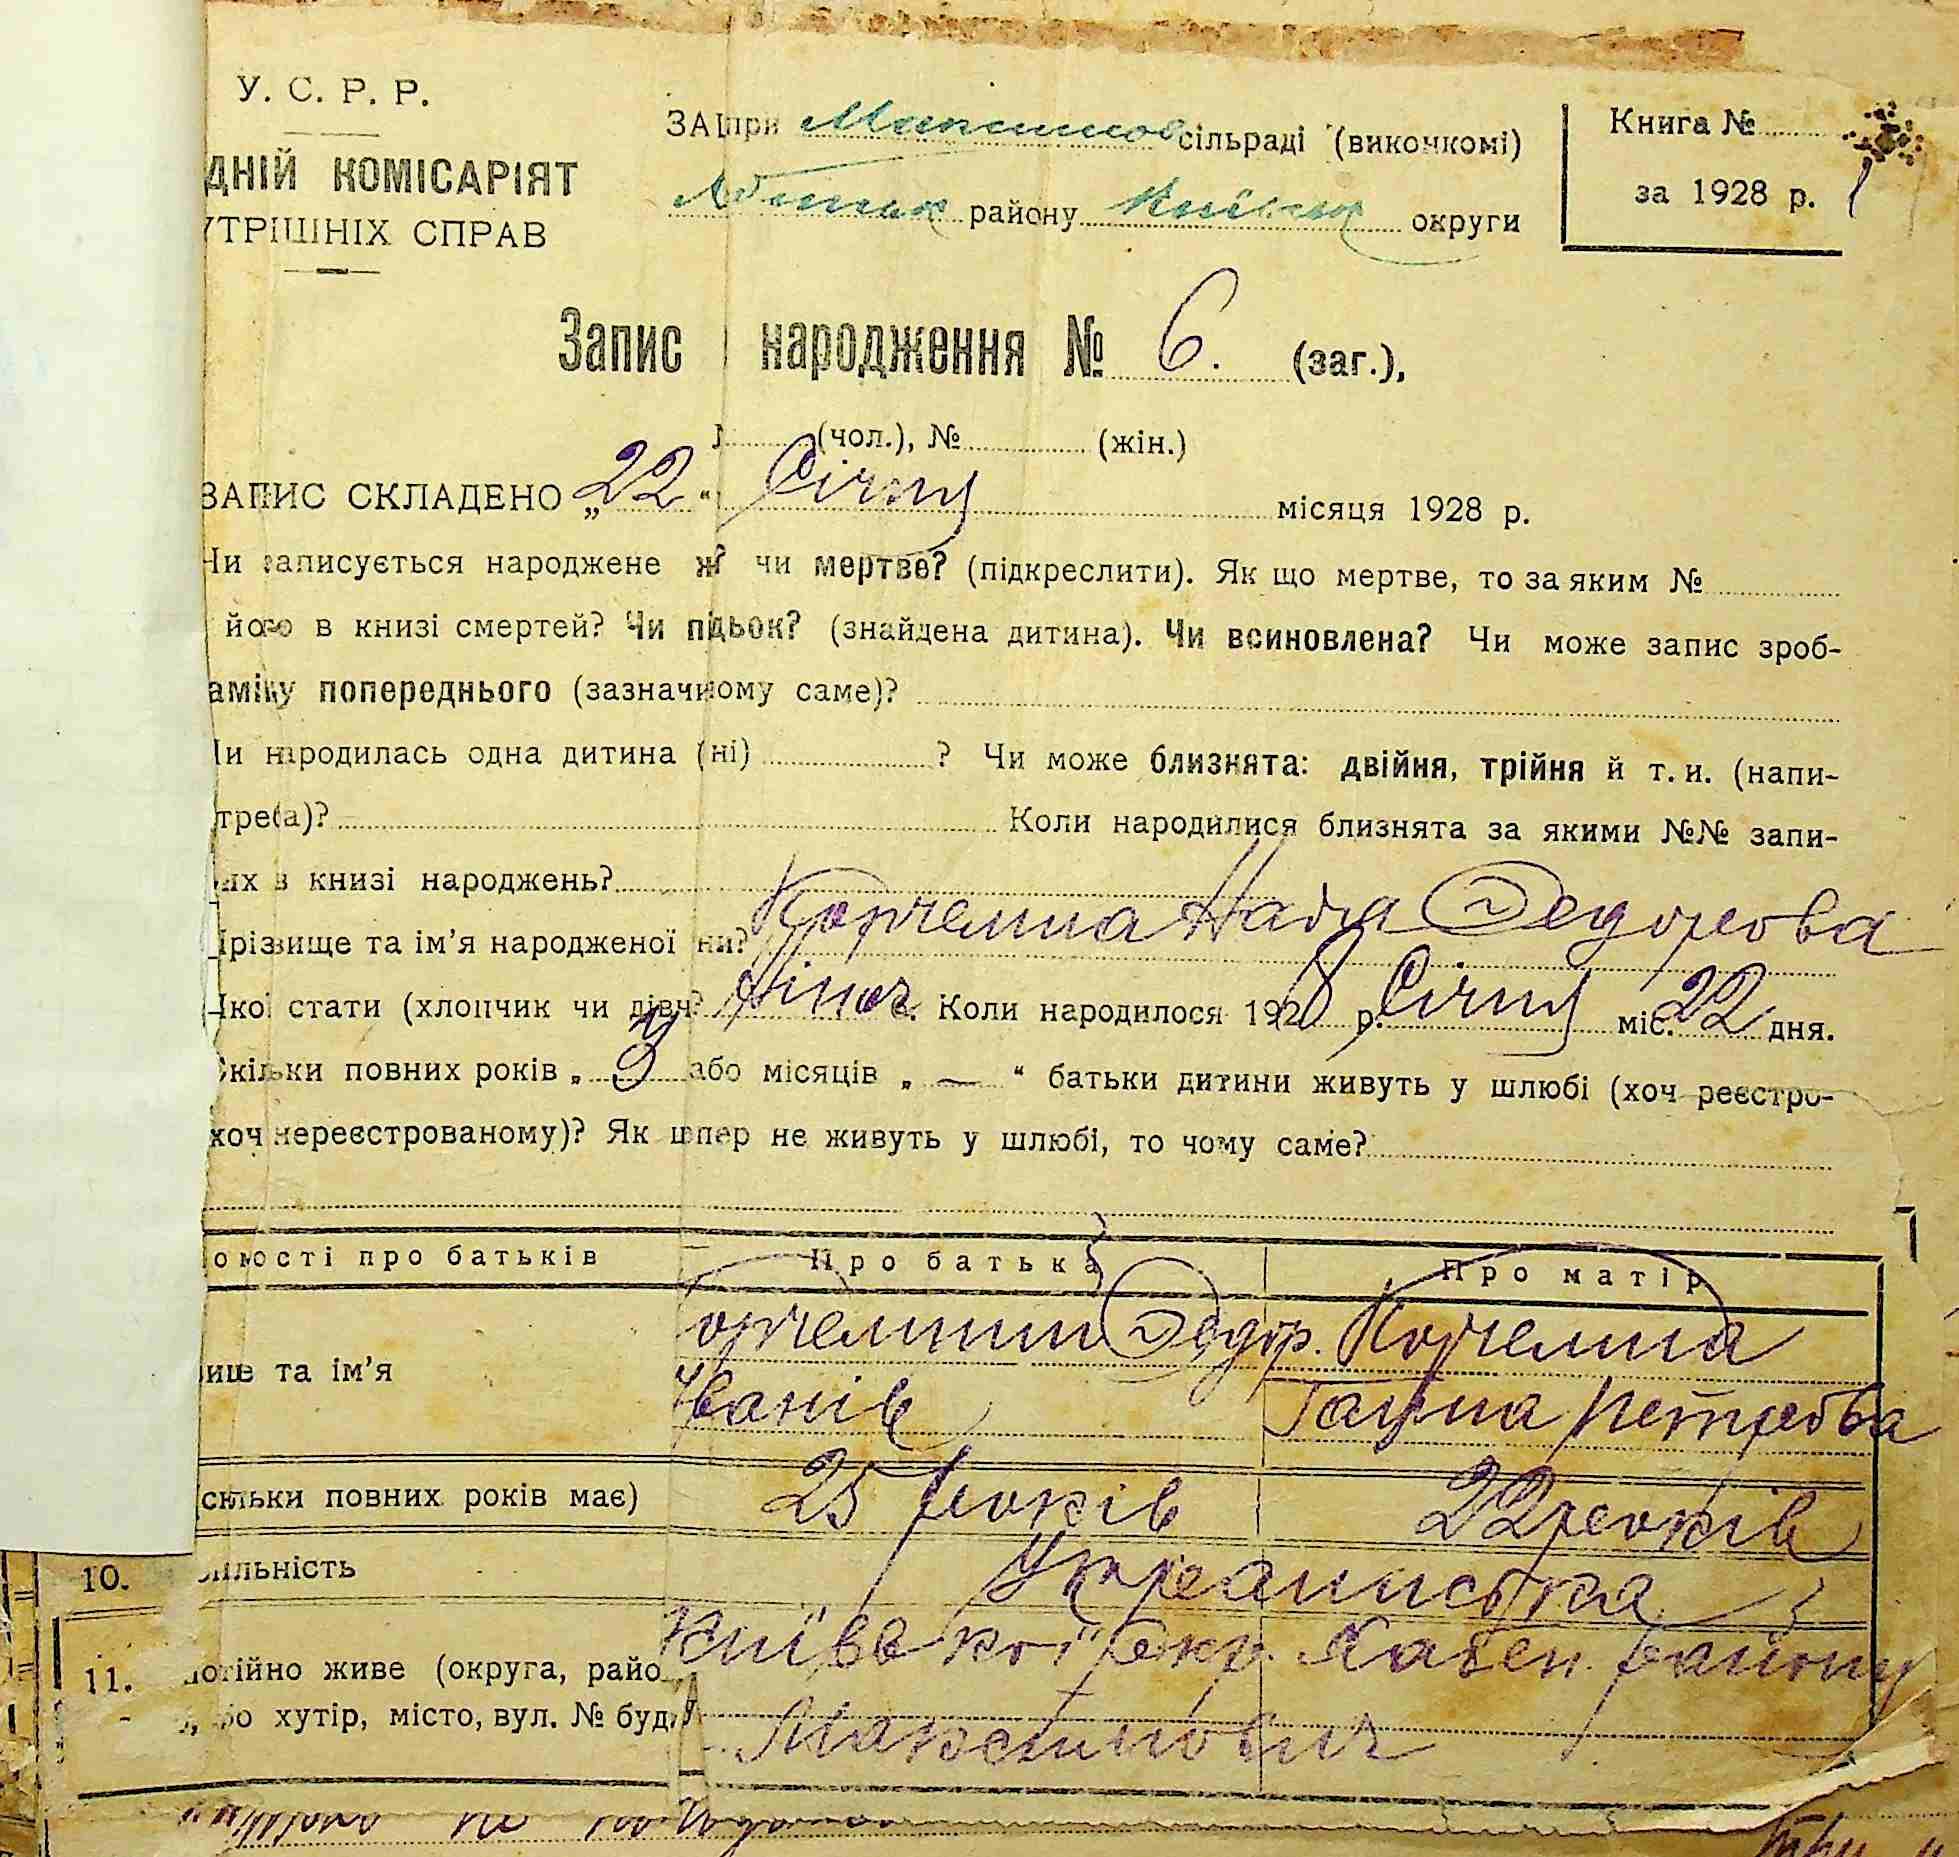 У. С. Р. Р.
ДНІЙ КОМІСАРІЯТ
УТРІШНІХ СПРАВ
ЗА при Максимов сільраді (виконкомі)
району Київськ округи
Книга №
за 1928 р.
Запис народження № 6. (заг.),
(чол.), № (жін.)
ЗАПИС СКЛАДЕНО „22“ Січня місяця 1928 р.
Чи записується народжене ж? чи мертве? (підкреслити). Як що мертве, то за яким №
його в книзі смертей? Чи підьок? (знайдена дитина). Чи всиновлена? Чи може запис зроб-
аміну попереднього (зазначному саме)?
Чи народилась одна дитина (ні) ? Чи може близнята: двійня, трійня й т. и. (напи-
треба)? Коли народилися близнята за якими №№ запи-
их в книзі народжень?
Прізвище та ім’я народженої ни? Корчемна Надя Федорова
Якої стати (хлопчик чи дівч? Жіноч. Коли народилося 1928 р. Січня міс. 22 дня.
Скільки повних років „ 3 або місяців „ — “ батьки дитини живуть у шлюбі (хоч реєстро-
хоч нереєстрованому)? Як тепер не живуть у шлюбі, то чому саме?
омості про батьків Про батька Про матір
ище та ім’я орчемний Федір. Корчемна
Іванів Ганна Петрова
скільки повних років має) 25 років 22 років
10. яльність Украинська
11. остійно живе (округа, райо Київської окр. Хабен. району
або хутір, місто, вул. № буд Максимович